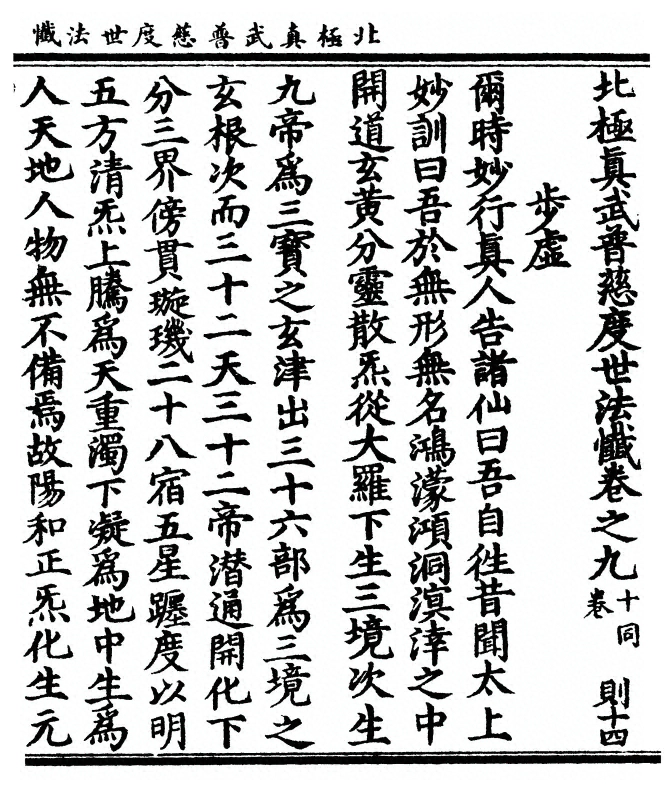 北極真武普慈度世法懺
北極眞武普慈度世法懺卷之九 十同卷 則十四
步虛
爾時妙行眞人告諸仙曰吾自徃昔聞太上
妙訓曰吾於無形無名鴻濛澒洞溟涬之中
開道玄黃分靈散炁從大羅下生三境次生
九帝爲三寶之玄津出三十六部爲三境之
玄根次而三十二天三十二帝潛通開化下
分三界傍貫璇璣二十八宿五星躔度以明
五方清炁上騰爲天重濁下凝爲地中生爲
人天地人物無不備焉故陽和正炁化生元